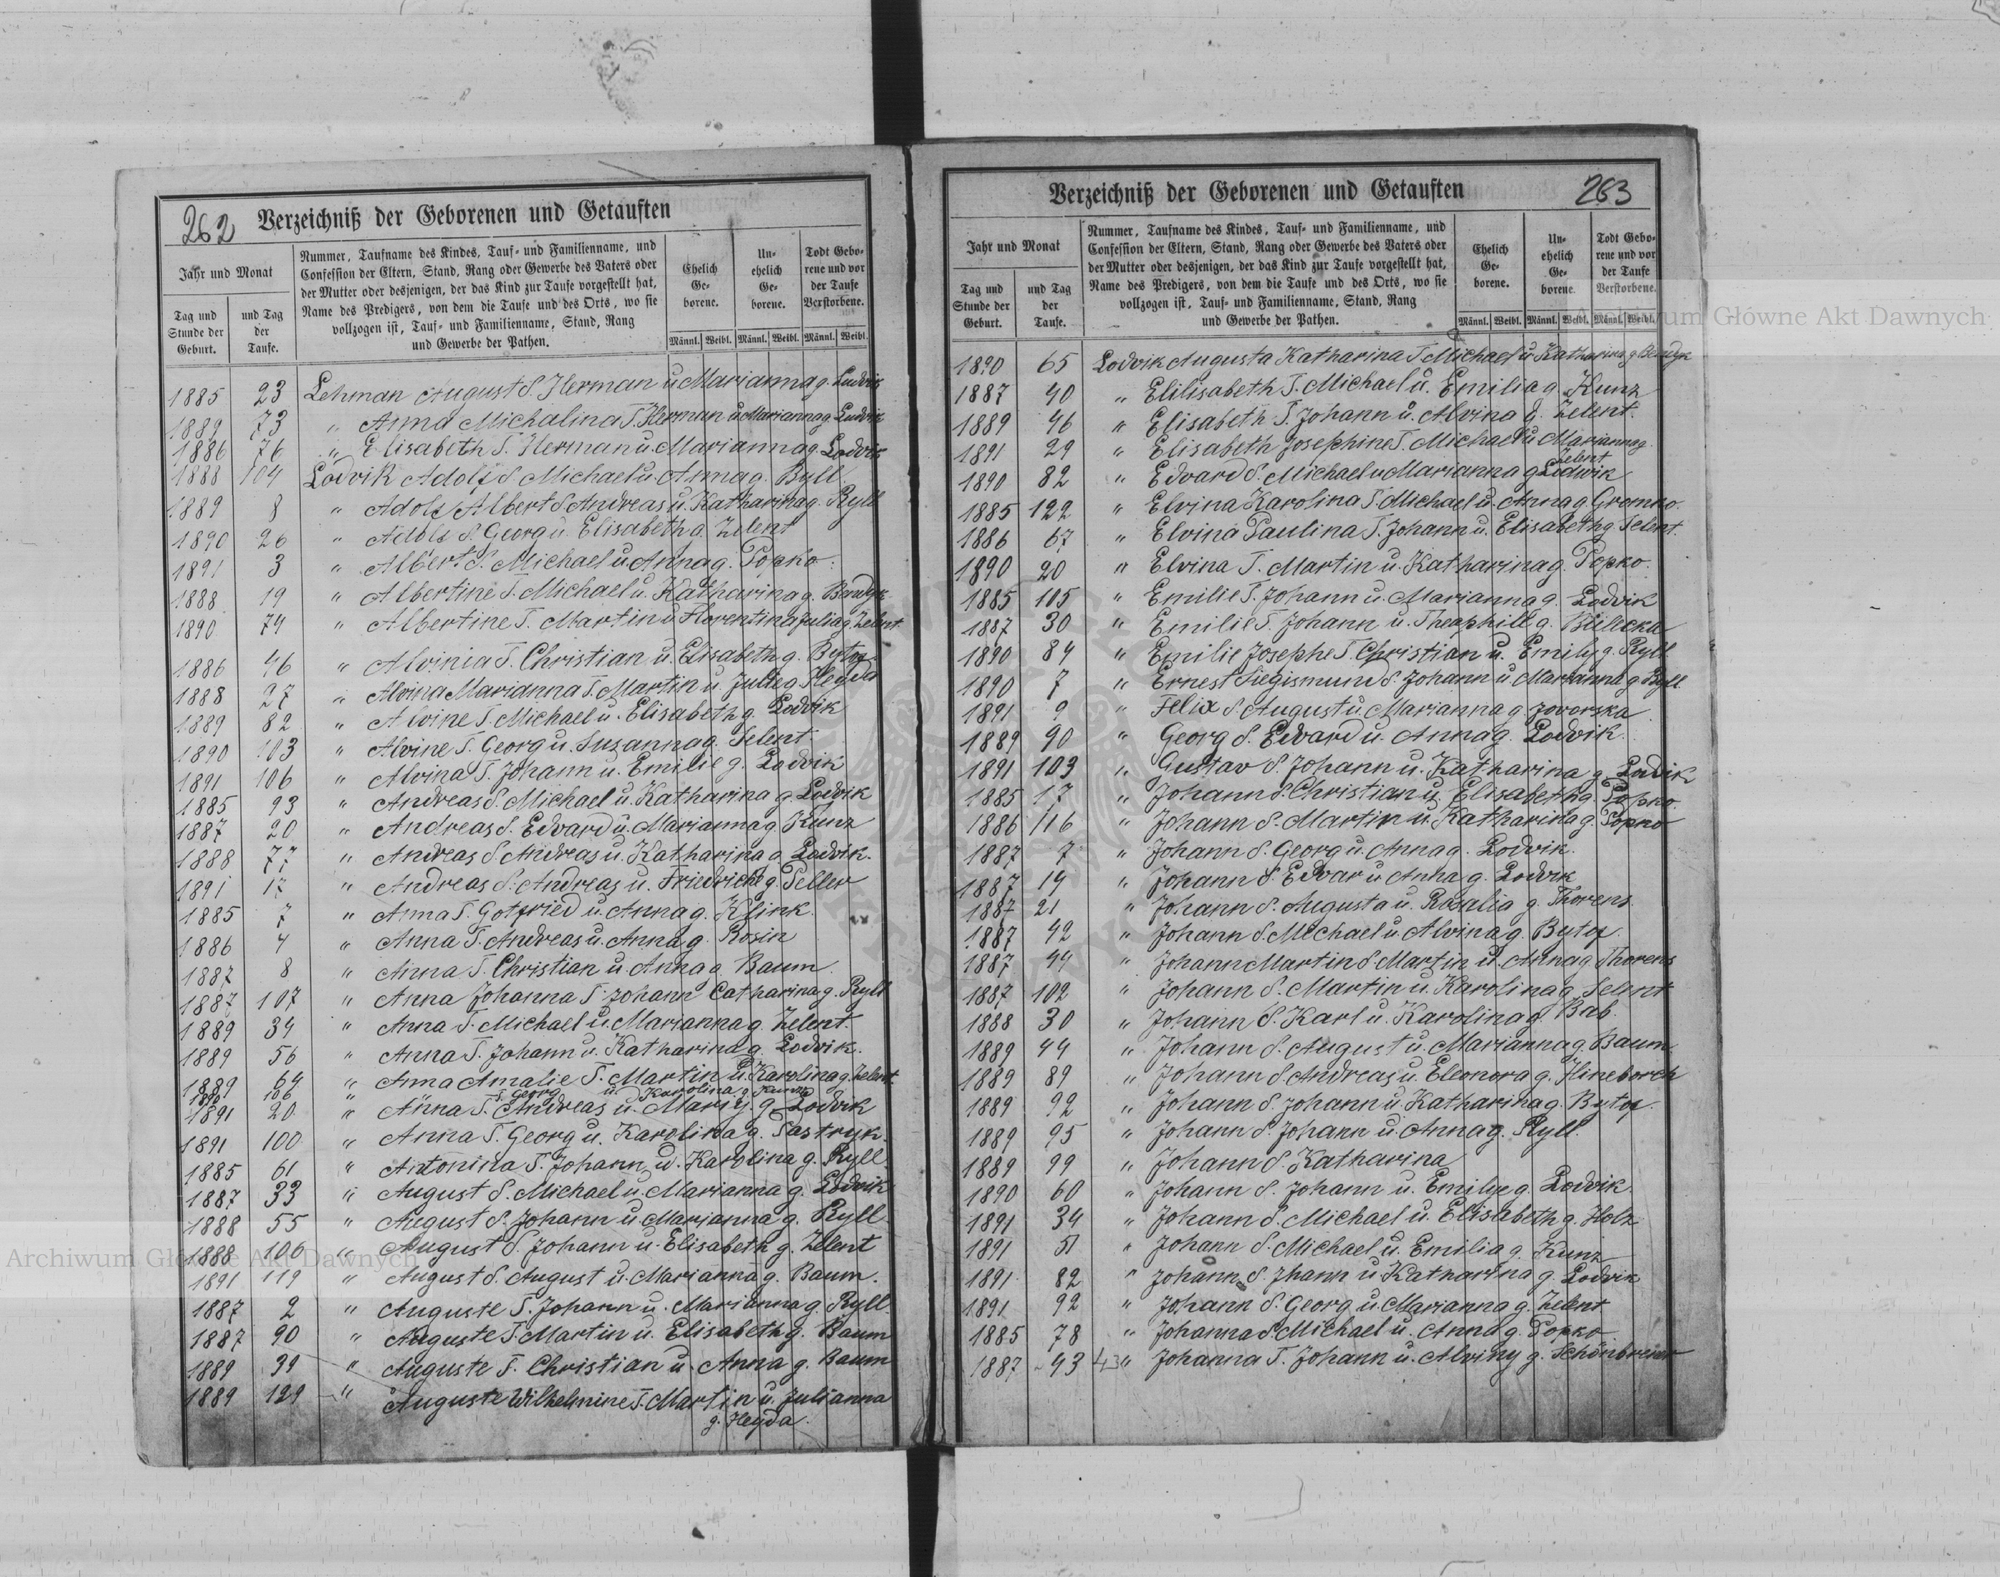 262 Verzeichniß der Geborenen und Getauften
Jahr und Monat
Tag und Stunde der Geburt.
und Tag der Taufe.
Nummer, Taufname des Kindes, Tauf- und Familienname, und
Confession der Eltern, Stand, Rang oder Gewerbe des Vaters oder
der Mutter oder desjenigen, der das Kind zur Taufe vorgestellt hat,
Name des Predigers, von dem die Taufe und des Orts, wo sie
vollzogen ist, Tauf- und Familienname, Stand, Rang
und Gewerbe der Pathen.
Ehelich Ge- borene.
Un- ehelich Ge- borene.
Todt Gebo- rene und vor der Taufe Verstorbene.
Männl. Weibl. Männl. Weibl. Männl. Weibl.
1885 23 Lehman August S. Herman u Marianna g. Ludvik
1889 73 " Anna Michalina T. Herman u Marianna g Ludvik
1886 76 " Elisabeth T. Herman u. Marianna g. Lodvik
1888 104 Lodvik Adolf S Michael u. Anna g. Ryll
1889 8 " Adolf Albert S Andreas u. Katharina g. Ryll
1890 26 " Adolf S. Georg u. Elisabeth g. Zelent
1891 3 " Albert S. Michael u Anna g. Popko.
1888 19 " Albertine T. Michael u. Katharina g.
1890 74 " Albertine T. Martin u Florentina Julia g. Zelent
1886 46 " Alvinia T. Christian u. Elisabeth g.
1888 27 " Alvina Marianna T. Martin u. Julie g Heyda
1889 82 " Alvine T. Michael u. Elisabeth g. Lodvik
1890 103 " Alvine T. Georg u. Susanna g. Selent.
1891 106 " Alvina T. Johann u. Emilie g. Lodvik
1885 93 " Andreas S. Michael u. Katharina g. Lodvik
1887 20 " Andreas S. Edvard u. Marianna g Kunz
1888 77 " Andreas S Andreas u. Katharina g Lodvik.
1891 17 " Andreas S. Andreas u. Friedriche g. Seller
1885 7 " Anna T. Gotfried u. Anna g. Klink.
1886 4 " Anna T. Andreas u. Anna g. Rosin
1887 8 " Anna T. Christian u. Anna g Baum.
1887 107 " Anna Johanna T Johann Catharina g. Ryll
1889 34 " Anna T. Michael u. Marianna g. Zelent.
1889 56 " Anna T. Johann u. Katharina g Lodvik.
1889 64 " Anna Amalie T. Martin u. Karolina g. Zelent
1890 106 T. Georg u. Karolina g.
1891 20 " Anna T. Andreas u. Mariy. g Lodvik
1891 100 " Anna T. Georg u. Karolina g. Pastryk.
1885 61 " Antonina T. Johann u. Karolina g. Ryll.
1887 33 " August S. Michael u. Marianna g. Lodvik
1888 55 " August S. Johann u. Marianna g. Ryll
1888 106 " August S. Johann u. Elisabeth g. Zelent
1891 119 " August S. August u. Marianna g. Baum.
1887 2 " Auguste T. Johann u. Marianna g. Ryll.
1887 90 " Auguste T. Martin u. Elisabeth g. Baum
1889 39 " Auguste T. Christian u. Anna g. Baum
1889 129 " Auguste Wilhelmine T. Martin u. Julianna
g. Heyda.
Verzeichniß der Geborenen und Getauften 263
Jahr und Monat
Tag und Stunde der Geburt.
und Tag der Taufe.
Nummer, Taufname des Kindes, Tauf- und Familienname, und
Confession der Eltern, Stand, Rang oder Gewerbe des Vaters oder
der Mutter oder desjenigen, der das Kind zur Taufe vorgestellt hat,
Name des Predigers, von dem die Taufe und des Orts, wo sie
vollzogen ist, Tauf- und Familienname, Stand, Rang
und Gewerbe der Pathen.
Ehelich Ge- borene.
Un- ehelich Ge- borene.
Todt Gebo- rene und vor der Taufe Verstorbene.
Männl. Weibl. Männl. Weibl. Männl. Weibl.
1890 65 Lodvik Augusta Katharina T Michael u Katharina g
1887 40 " Elilisabeth T. Michael u. Emilia g. Kunz
1889 46 " Elisabeth T. Johann u. Alvina g. Zelent.
1891 29 " Elisabeth Josephine T. Michael u Marianna g
Zelent
1890 82 " Edvard S. Michael u Marianna g Lodwik
1885 122 " Elvina Karolina T Michael u. Anna g Gromko.
1886 67 " Elvina Paulina T. Johann u. Elisabeth g Selent.
1890 20 " Elvina T. Martin u. Katharina g. Popko.
1885 105 " Emilie T. Johann u. Marianna g. Lodvik
1887 30 " Emilie T. Johann u. Theophill g.
1890 84 " Emilie Josephe T. Christian u. Emily g. Ryll
1890 7 " Ernest Siegismund S. Johann u Marianna g Ryll
1891 9 " Felix S. August u. Marianna g. Jovorska
1889 90 " Georg S. Edvard u. Anna g. Lodvik.
1891 103 " Gustav S. Johann u. Katharina g Lodvik
1885 17 " Johann S. Christian u. Elisabeth g. Popko
1886 116 " Johann S. Martin u. Katharina g. Popko
1887 7 " Johann S. Georg u. Anna g. Lodvik.
1887 19 " Johann S. Edvar u. Anna g. Lodvik
1887 21 " Johann S. Augusta u. Rosalia g Thorens.
1887 42 " Johann S. Michael u. Alvina g.
1887 44 " Johann Martin S Martin u. Anna g Thorens
1887 102 " Johann S. Martin u. Karolina g Selent
1888 30 " Johann S. Karl u. Karolina g. Bab.
1889 44 " Johann S. August u. Marianna g Baum
1889 89 " Johann S. Andreas u. Eleonora g.
1889 92 " Johann S. Johann u. Katharina g.
1889 95 " Johann S. Johann u. Anna g. Ryll.
1889 99 " Johann S. Katharina
1890 60 " Johann S. Johann u. Emilye g. Lodvik.
1891 34 " Johann S. Michael u. Elisabeth g. Holz
1891 51 " Johann S. Michael u. Emilia g. Kunz
1891 82 " Johann S. Jhann u Katharina g. Lodvik
1891 92 " Johann S. Georg u. Marianna g. Zelent
1885 78 " Johanna S Michael u. Anna g. Popko
1887 43 43 " Johanna T. Johann u. Alviny g.
Archiwum Główne Akt Dawnych
Archiwum Główne Akt Dawnych